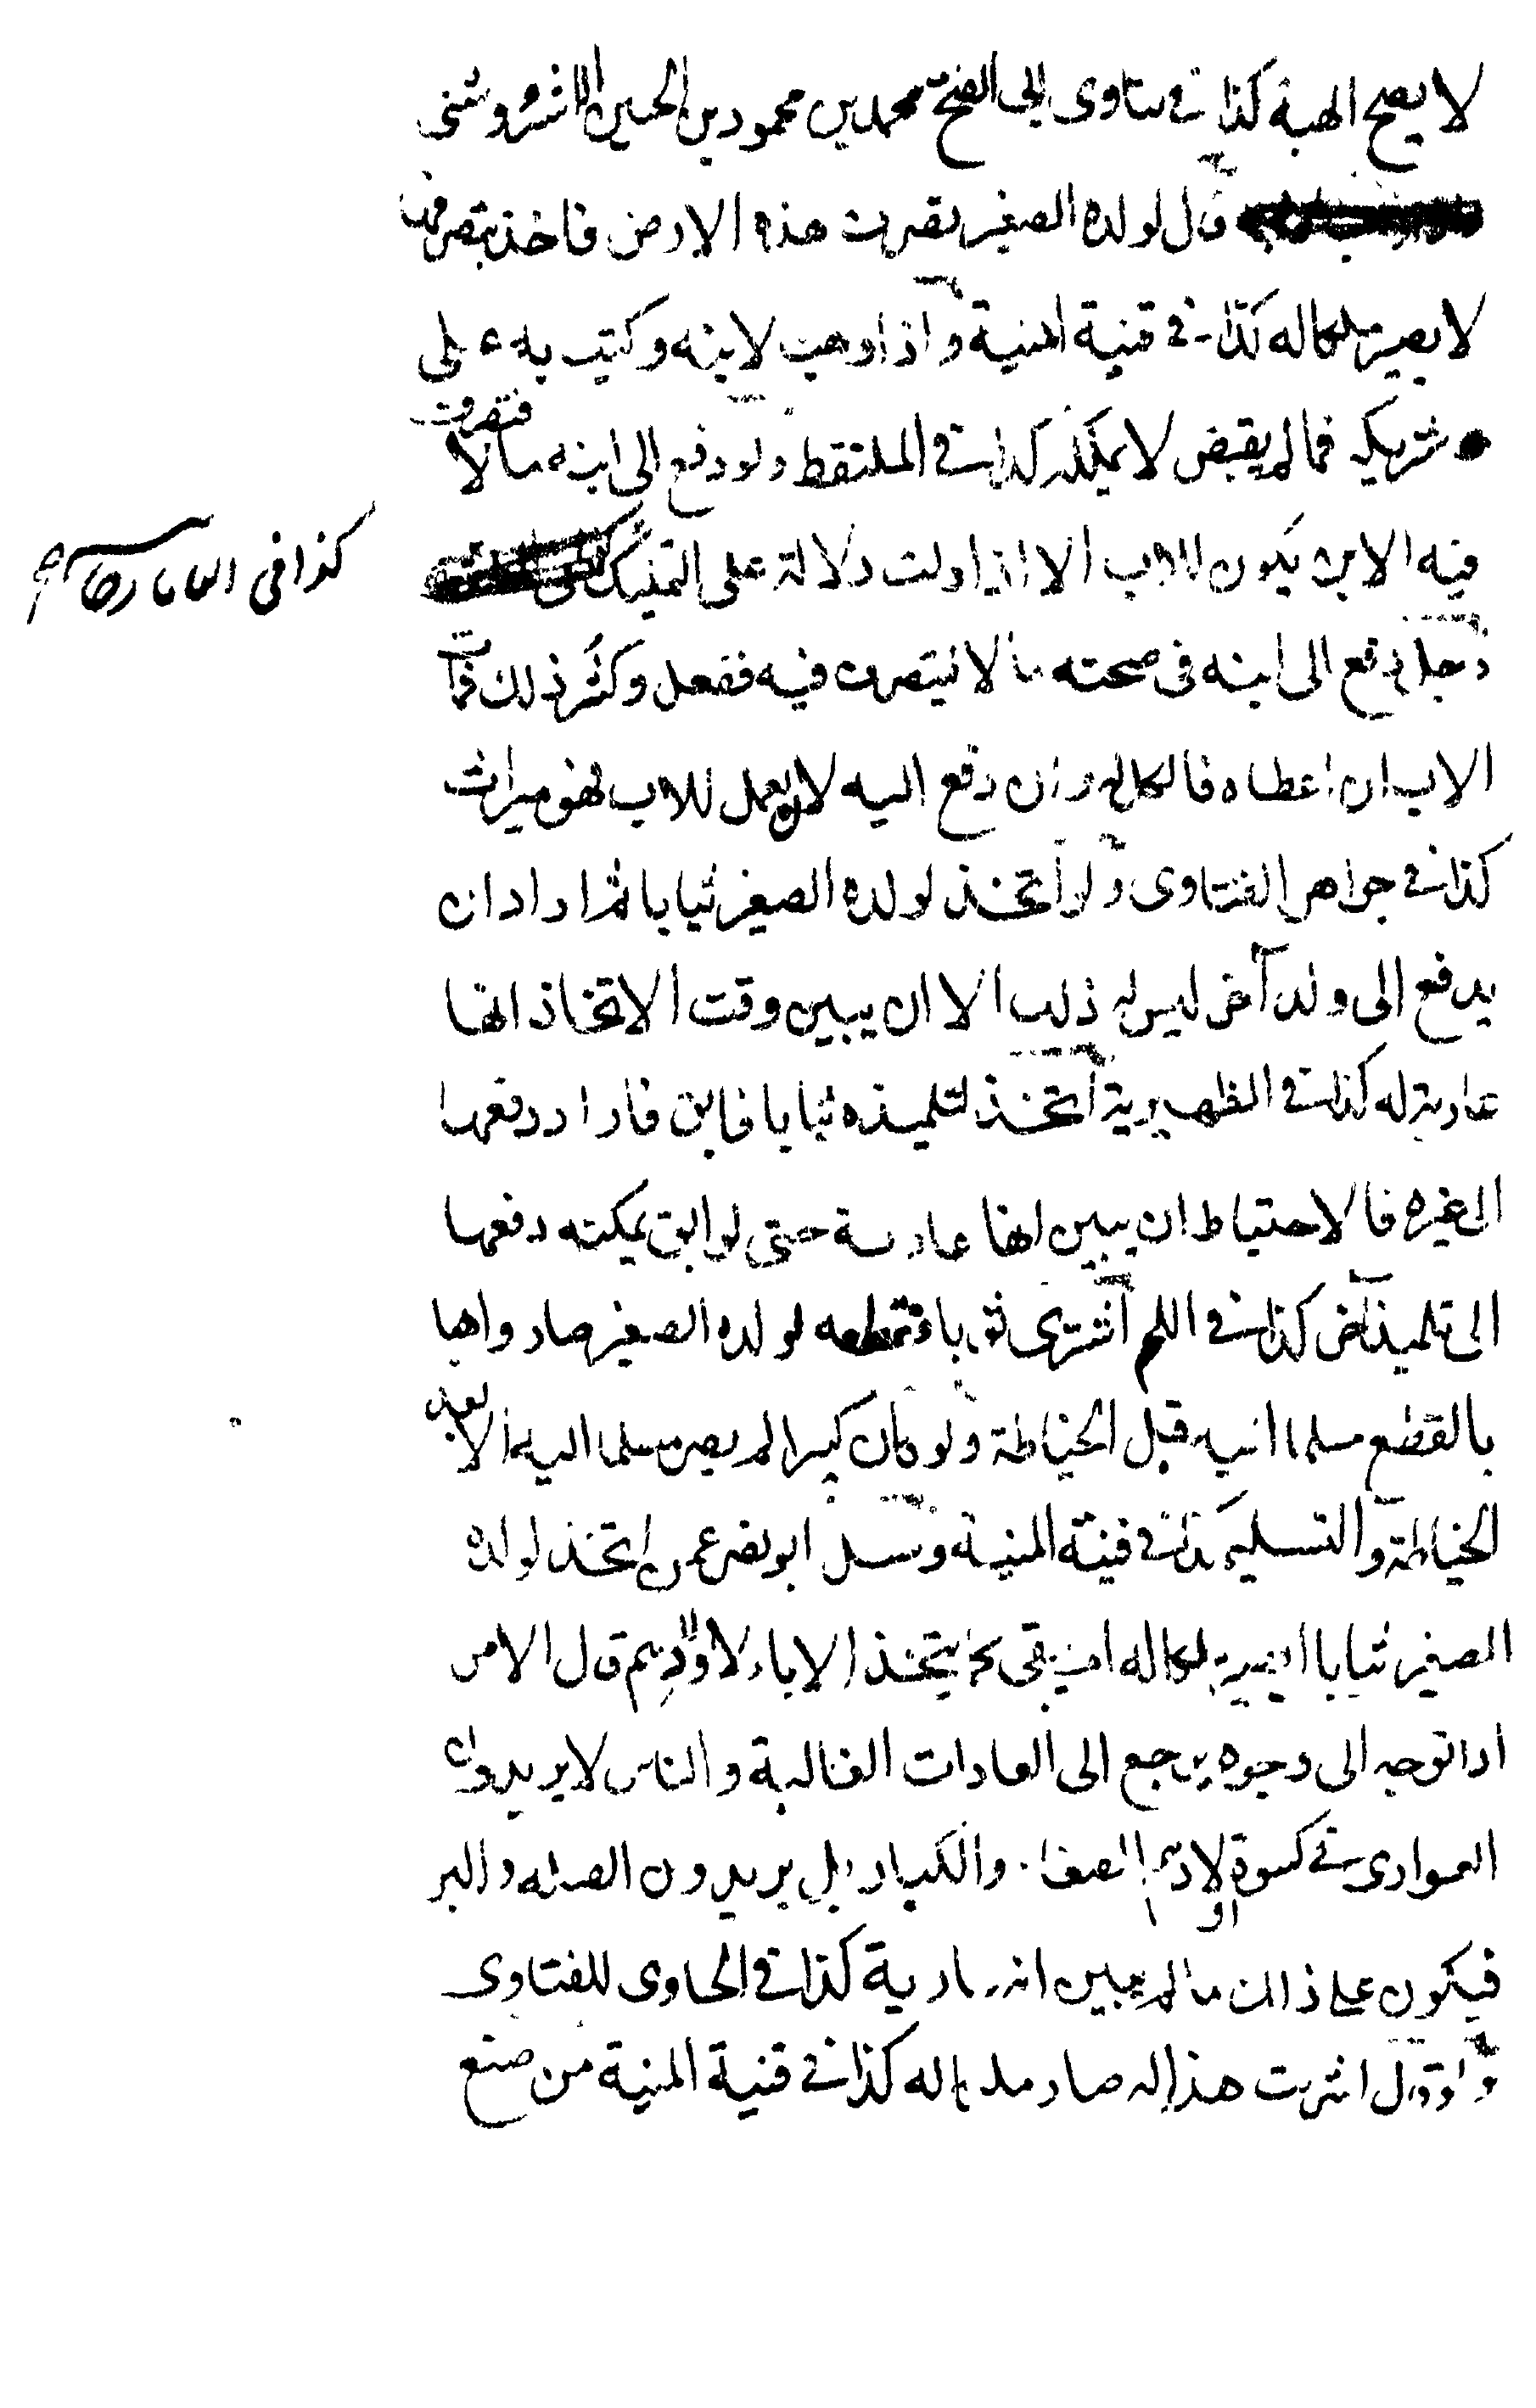 لا يصح الهبة كذا في فتاوى ابي الفتح محمد بن محمود بن الحسين الاشروشني
قال لولده الصغير تصرف هذه الارض فاخذ يتصرف فيها
لا يصير ملكا له كذا في قنية المنية واذا وهب لابنه وكتب به على
شريكه فما لم يقبض لا يملكه كذا في الملتقط ولو دفع الى ابنه مالا فتصرف
فيه الابن يكون للاب الا اذا دلت دلالة على التمليك
كذا في التاتارخانية
رجل دفع الى ابنه في صحته مالا يتصرف فيه ففعل وكثر ذلك فمات
الاب ان اعطاه فالكل له وان دفع اليه لان يعمل للاب فهو ميراث
كذا في جواهر الفتاوى ولو اتخذ لولده الصغير ثيابا ثم اراد ان
يدفع الى ولد آخر ليس له ذلك الا ان يبين وقت الاتخاذ انها
عارية له كذا في الظهيرية اتخذ لتلميذه ثيابا فابق فاراد دفعها
الى غيره فالاحتياط ان يبين انها عارية حتى لو ابق يمكنه دفعها
الى تلميذ آخر كذا في اشترى ثوبا فقطعه لولده الصغير صار واهبا
بالقطع مسلما اليه قبل الخياطة ولو كان كبيرا لم يصر مسلما اليه الا بعد
الخياطة والتسليم كذا في قنية المنية وسئل ابو نصر عمن اتخذ لولده
الصغير ثيابا ايصير ملكا له ام يبقى كما يتخذ الاباء لاولادهم قال الامر
اذا توجه الى وجوه يرجع الى العادات الغالبة والناس لا يريدون
العوارى في كسوة اولادهم الصغار والكبار بل يريدون الصلة والبر
فيكون على ذلك ما لم يبين انه عارية كذا في الحاوى للفتاوى
ولو قال اشتريت هذا له صار ملكا له كذا في قنية المنية من صنع